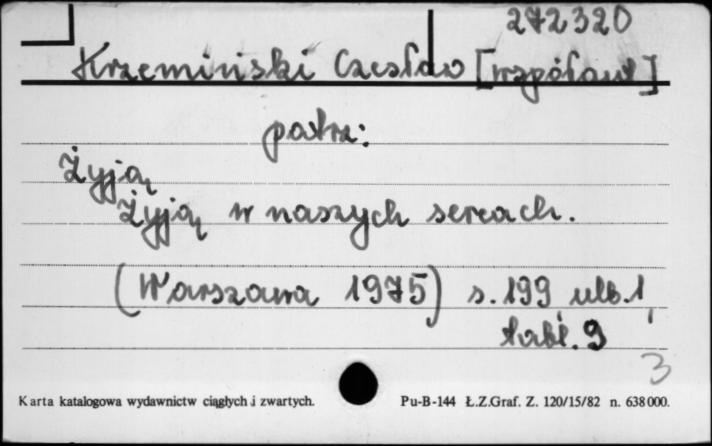 272320
Krzemiński Czesław [współaut]
patrz:
Żyją
Żyją w naszych sercach.
(Warszawa 1975) s. 199 ulb. 1,
tabl. 9
3
Karta katalogowa wydawnictw ciągłych i zwartych. Pu-B-144 Ł.Z.Graf. Z. 120/15/82 n. 638000.